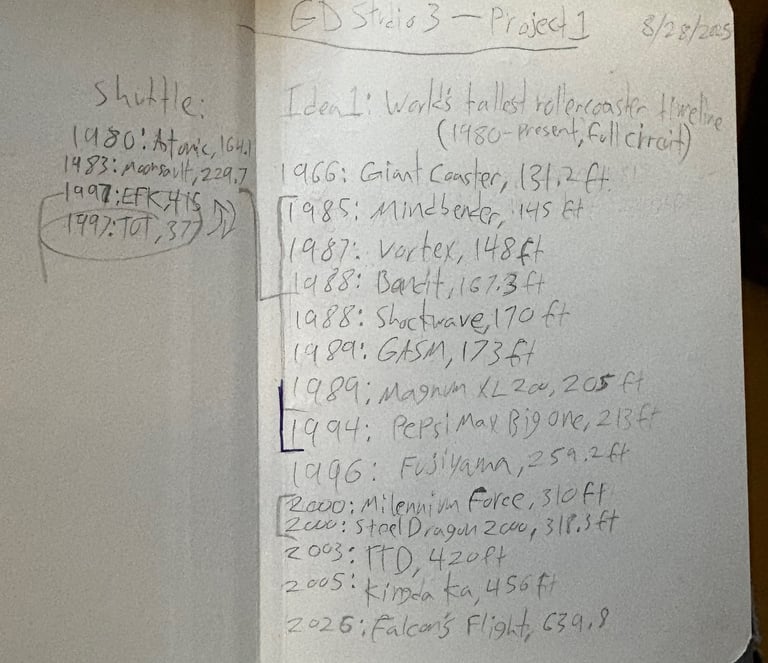 Shuttle:
1980: Atomic, 164.1
1983: Moonsault, 229.7
1997: EFK, 415
1997: TOT, 377
GD Studio 3 — Project 1 8/28/2025
Idea 1: World's tallest rollercoaster timeline
(1980-present, full circuit)
1966: Giant Coaster, 131.2 ft
1985: Mindbender, 145 ft
1987: Vortex, 148 ft
1988: Bandit, 167.3 ft
1988: Shockwave, 170 ft
1989: GASM, 173 ft
1989: Magnum XL 200, 205 ft
1994: Pepsi Max Big One, 213 ft
1996: Fujiyama, 259.2 ft
2000: Milennium Force, 310 ft
2000: Steel Dragon 2000, 318.3 ft
2003: TTD, 420 ft
2005: Kingda Ka, 456 ft
2026: Falcon's Flight, 639.8